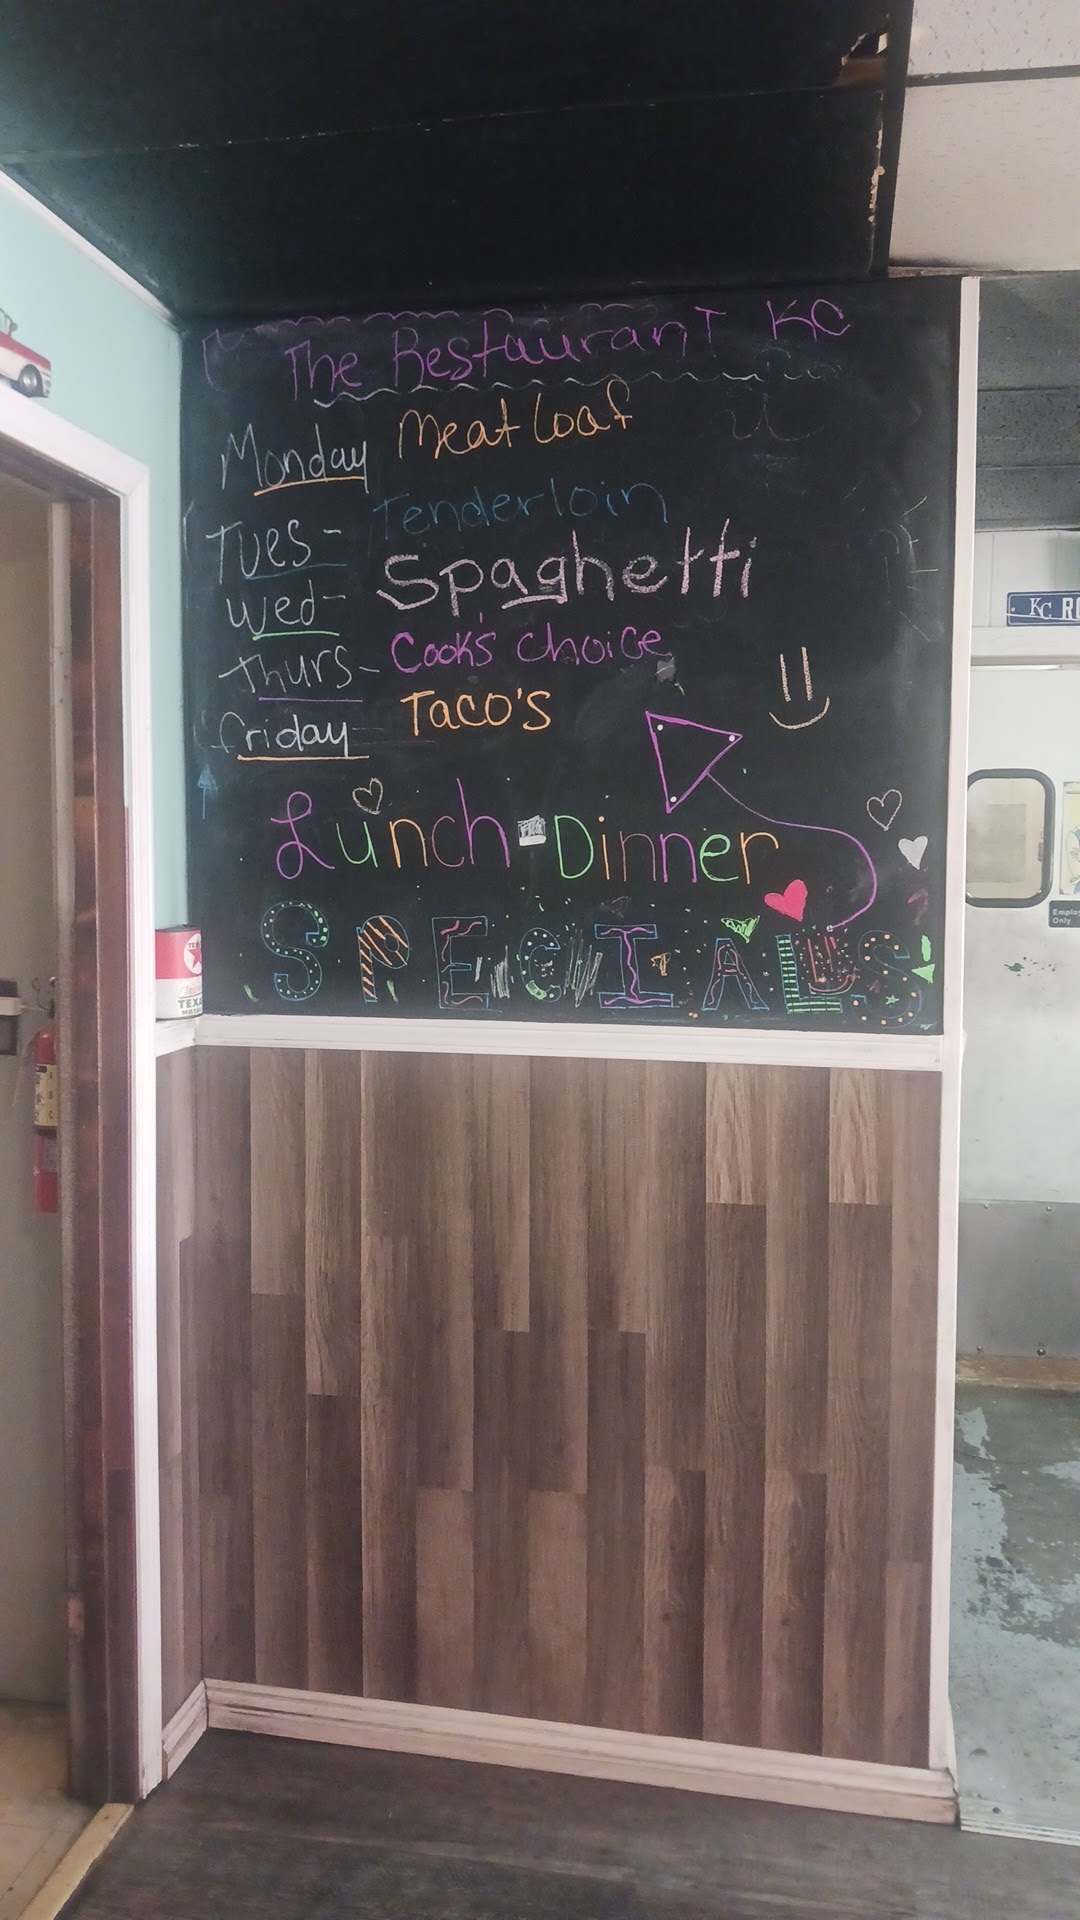 The Restaurant KC
Monday Meat loaf
Tues- Tenderloin
Wed- Spaghetti
Thurs- Cook's choice
friday Taco's
Lunch - Dinner
SPECIALS
KC
TEXA
Employ
Only